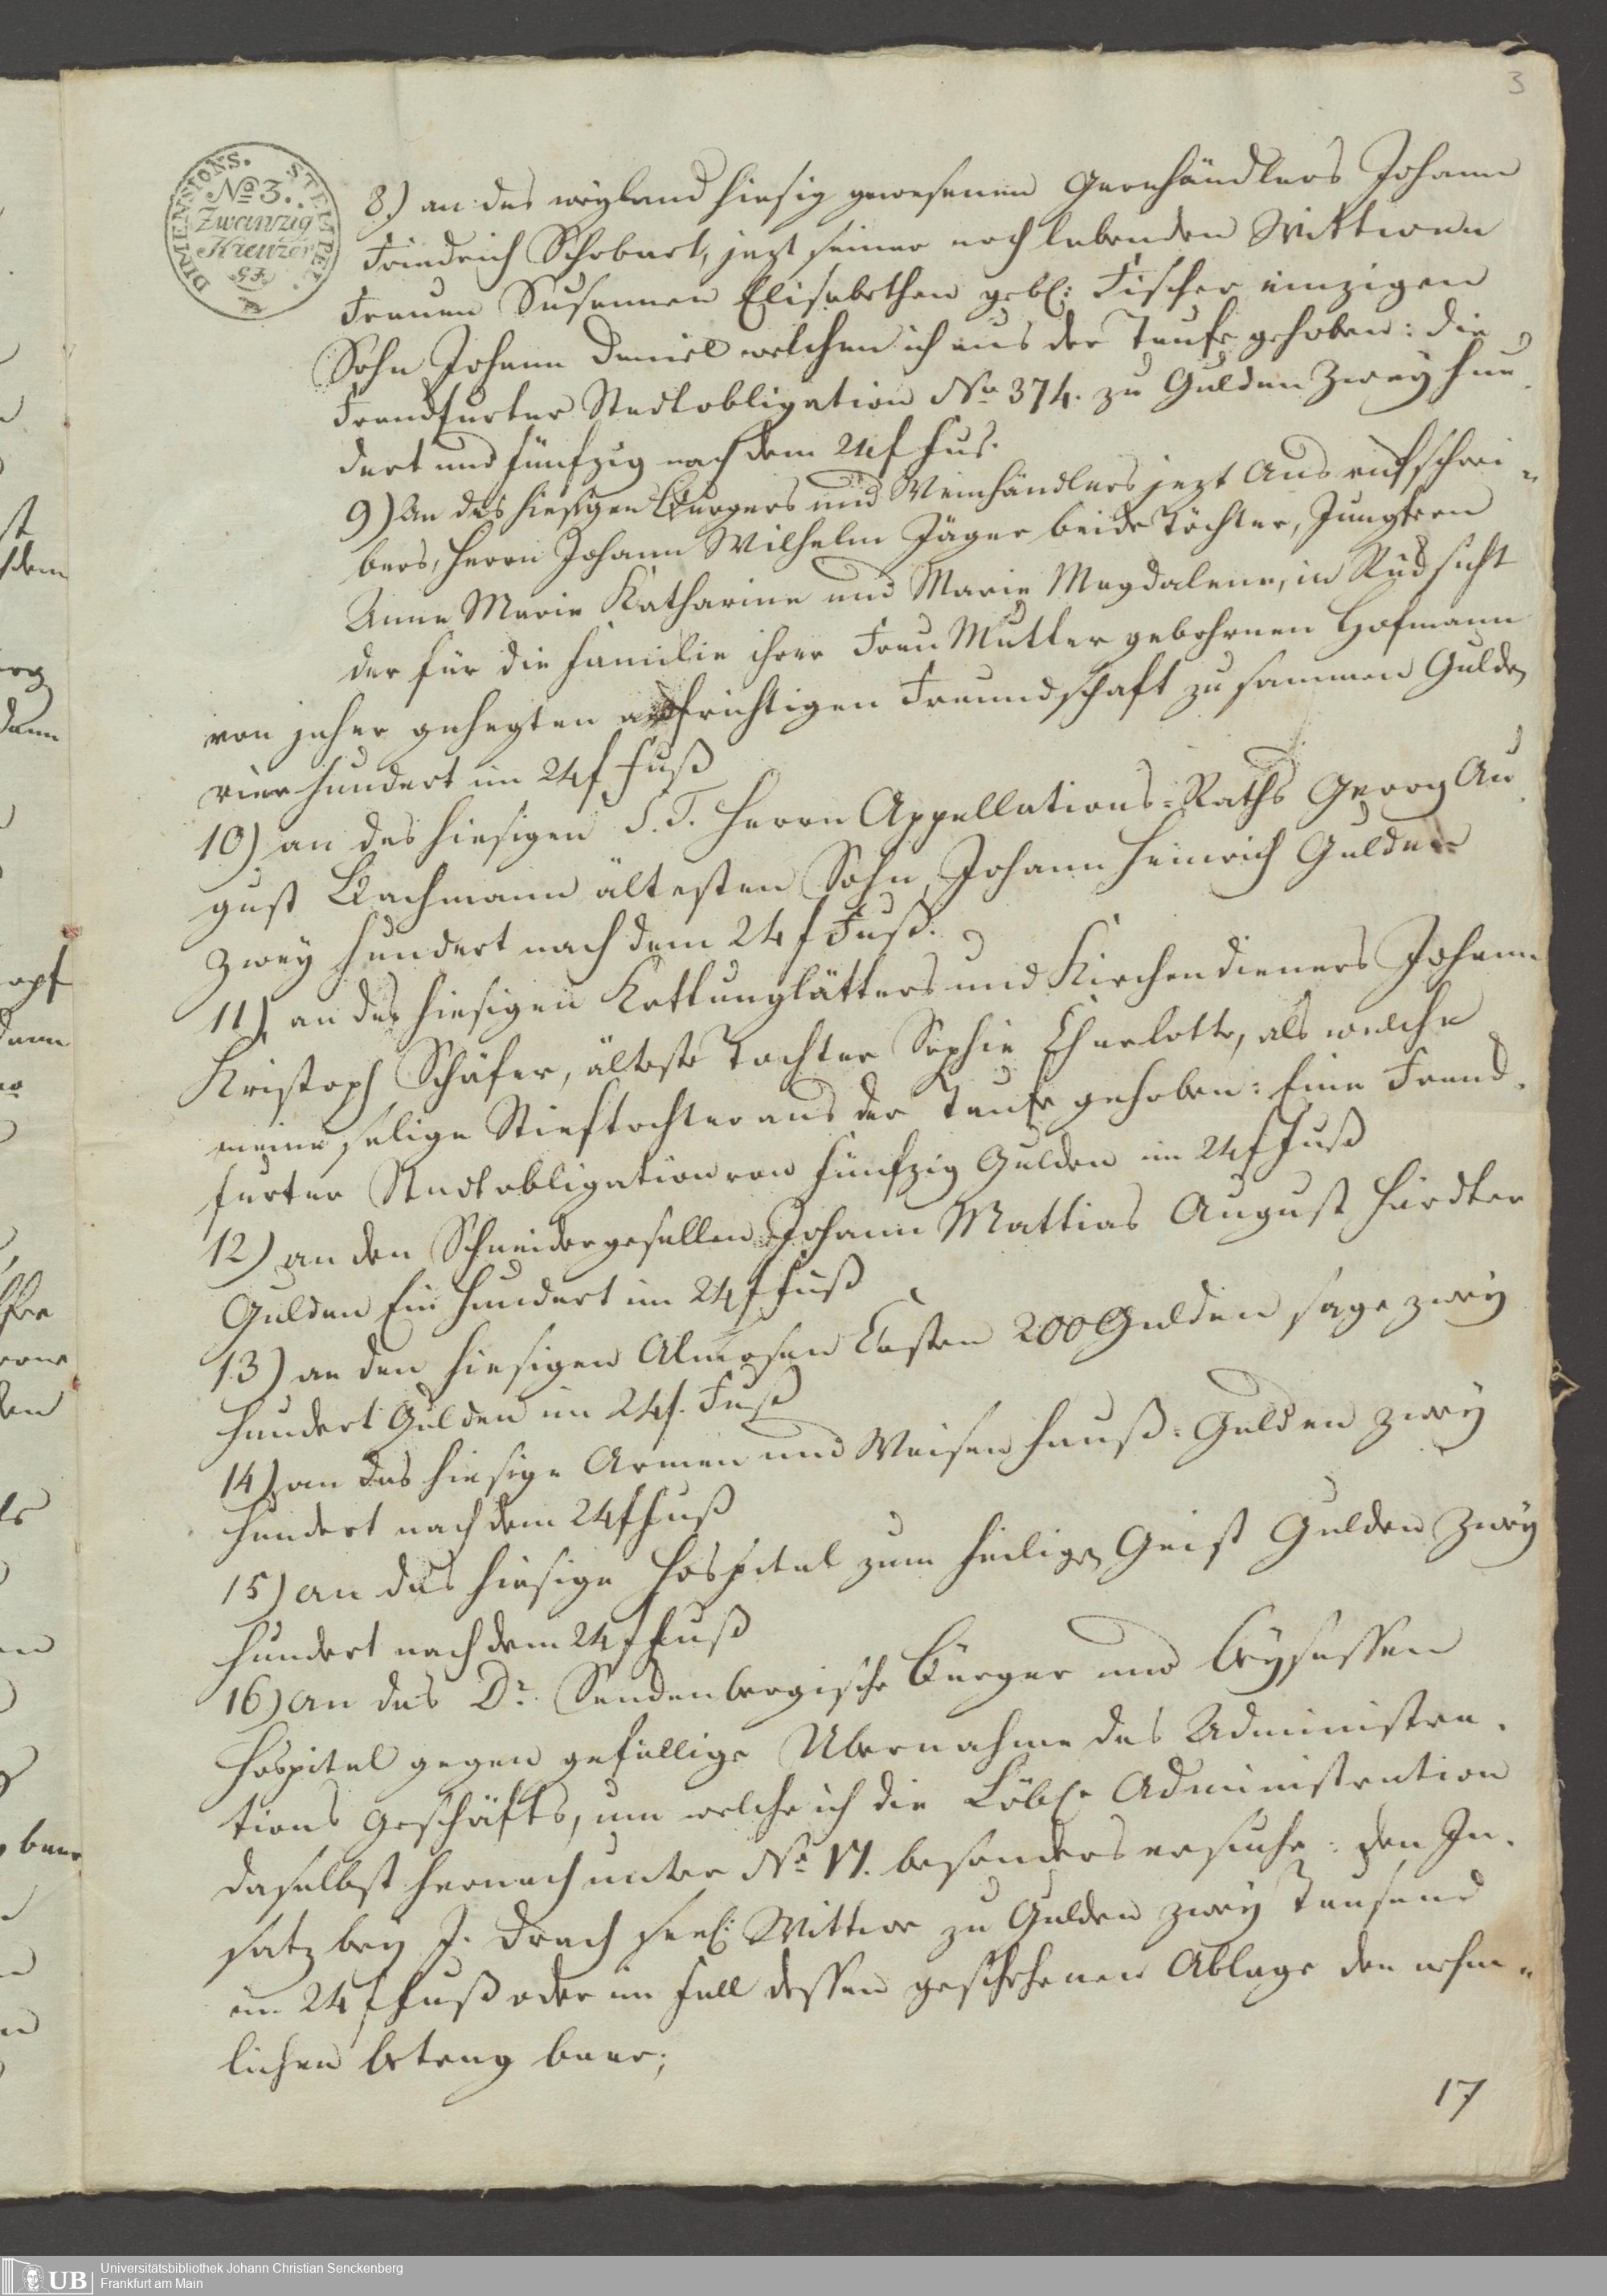 3
DIMENSIONS. STEMPEL.
No 3.
Zwanzig
Kreuzer
8.) an des weyland hiesig gewesenen Garnhändlers Johann
Friedrich Schobart, jezt seiner noch lebenden Wittwen
Frauen Susannen Elisabethen gebl: Fischer einzigen
Sohn Johann Daniel welchen ich aus der Taufe gehoben: die
Franckfurter Stadtobligation No 374. zu Gulden Zwey hun
dert und fünfzig nach dem 24 f Fus.
9) An des hiesigen Burgers und Weinhändlers jezt Ausrufschrei=
bers, Herrn Johann Wilhelm Jäger beide Töchter, Jungfern
Anna Maria Katharina und Maria Magdalena, in Rücksicht
der für die Familie ihrer Frau Mutter gebohrnen Hofmann
von jeher gehegten aufrichtigen Freundschaft zusammen Gulden
vier hundert im 24 f Fuß
10) an des hiesigen S. T. Herrn Appellations=Raths Georg Au
gust Bachmann ältesten Sohn, Johann Heinrich Gulden
Zwey hundert nach dem 24 f Fuß.
11) an des hiesigen Kattunglätters und Kirchendieners Johann
Kristoph Schäfer, älteste Tochter Sophie Charlotte, als welche
meine selige Stieftochter aus der Taufe gehoben: Eine Franck.
furter Stadtobligation von fünfzig Gulden im 24 f Fuß
12) an den Schneidergesellen Johann Mattias August Härdter
Gulden Ein hundert im 24 f Fuß
13) an den hiesigen Almosen Casten 200 Gulden sage zwey
hundert Gulden im 24 f. Fuß
14) an das hiesige Armen und Waisenhauß = Gulden zwey
hundert nach dem 24 f Fuß
15) an das hiesige Hospital zum heiligen Geist Gulden Zwey
hundert nach dem 24 f Fuß
16) an das Dr. Senckenbergische Bürger und Beysassen
Hospital gegen gefällige Übernahme des Administra.
tions Geschäfts, um welche ich die Löbl. Administration
daselbst hernach unter No 17. besonders ersuche: den In.
satz bey J. Drach seel: Wittwe zu Gulden zwey Tausend
im 24 f Fuß oder im Fall dessen geschehener Ablage den nehm=
lichen Betrag baar;
17
UB
Universitätsbibliothek Johann Christian Senckenberg
Frankfurt am Main